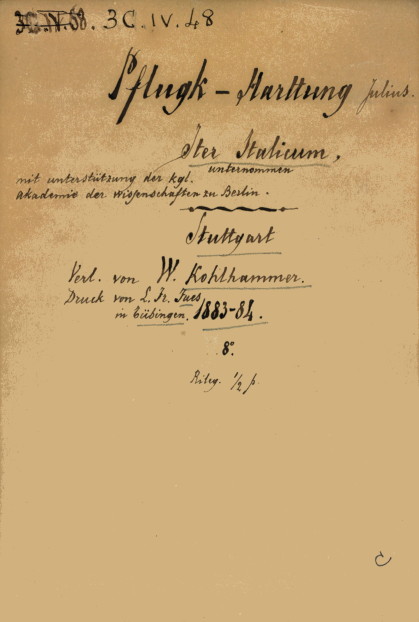 3C.IV.68. 3C.IV.48
Pflugk-Harttung Julius.
Iter Italicum,
unternommen
mit unterstützung der kgl.
akademie der wissenschaften zu Berlin.
Stuttgart
Verl. von W. Kohlhammer.
Druck von L. Fr. Fues
in Tübingen. 1883-84.
8°.
Rileg. 1/2 p.
C